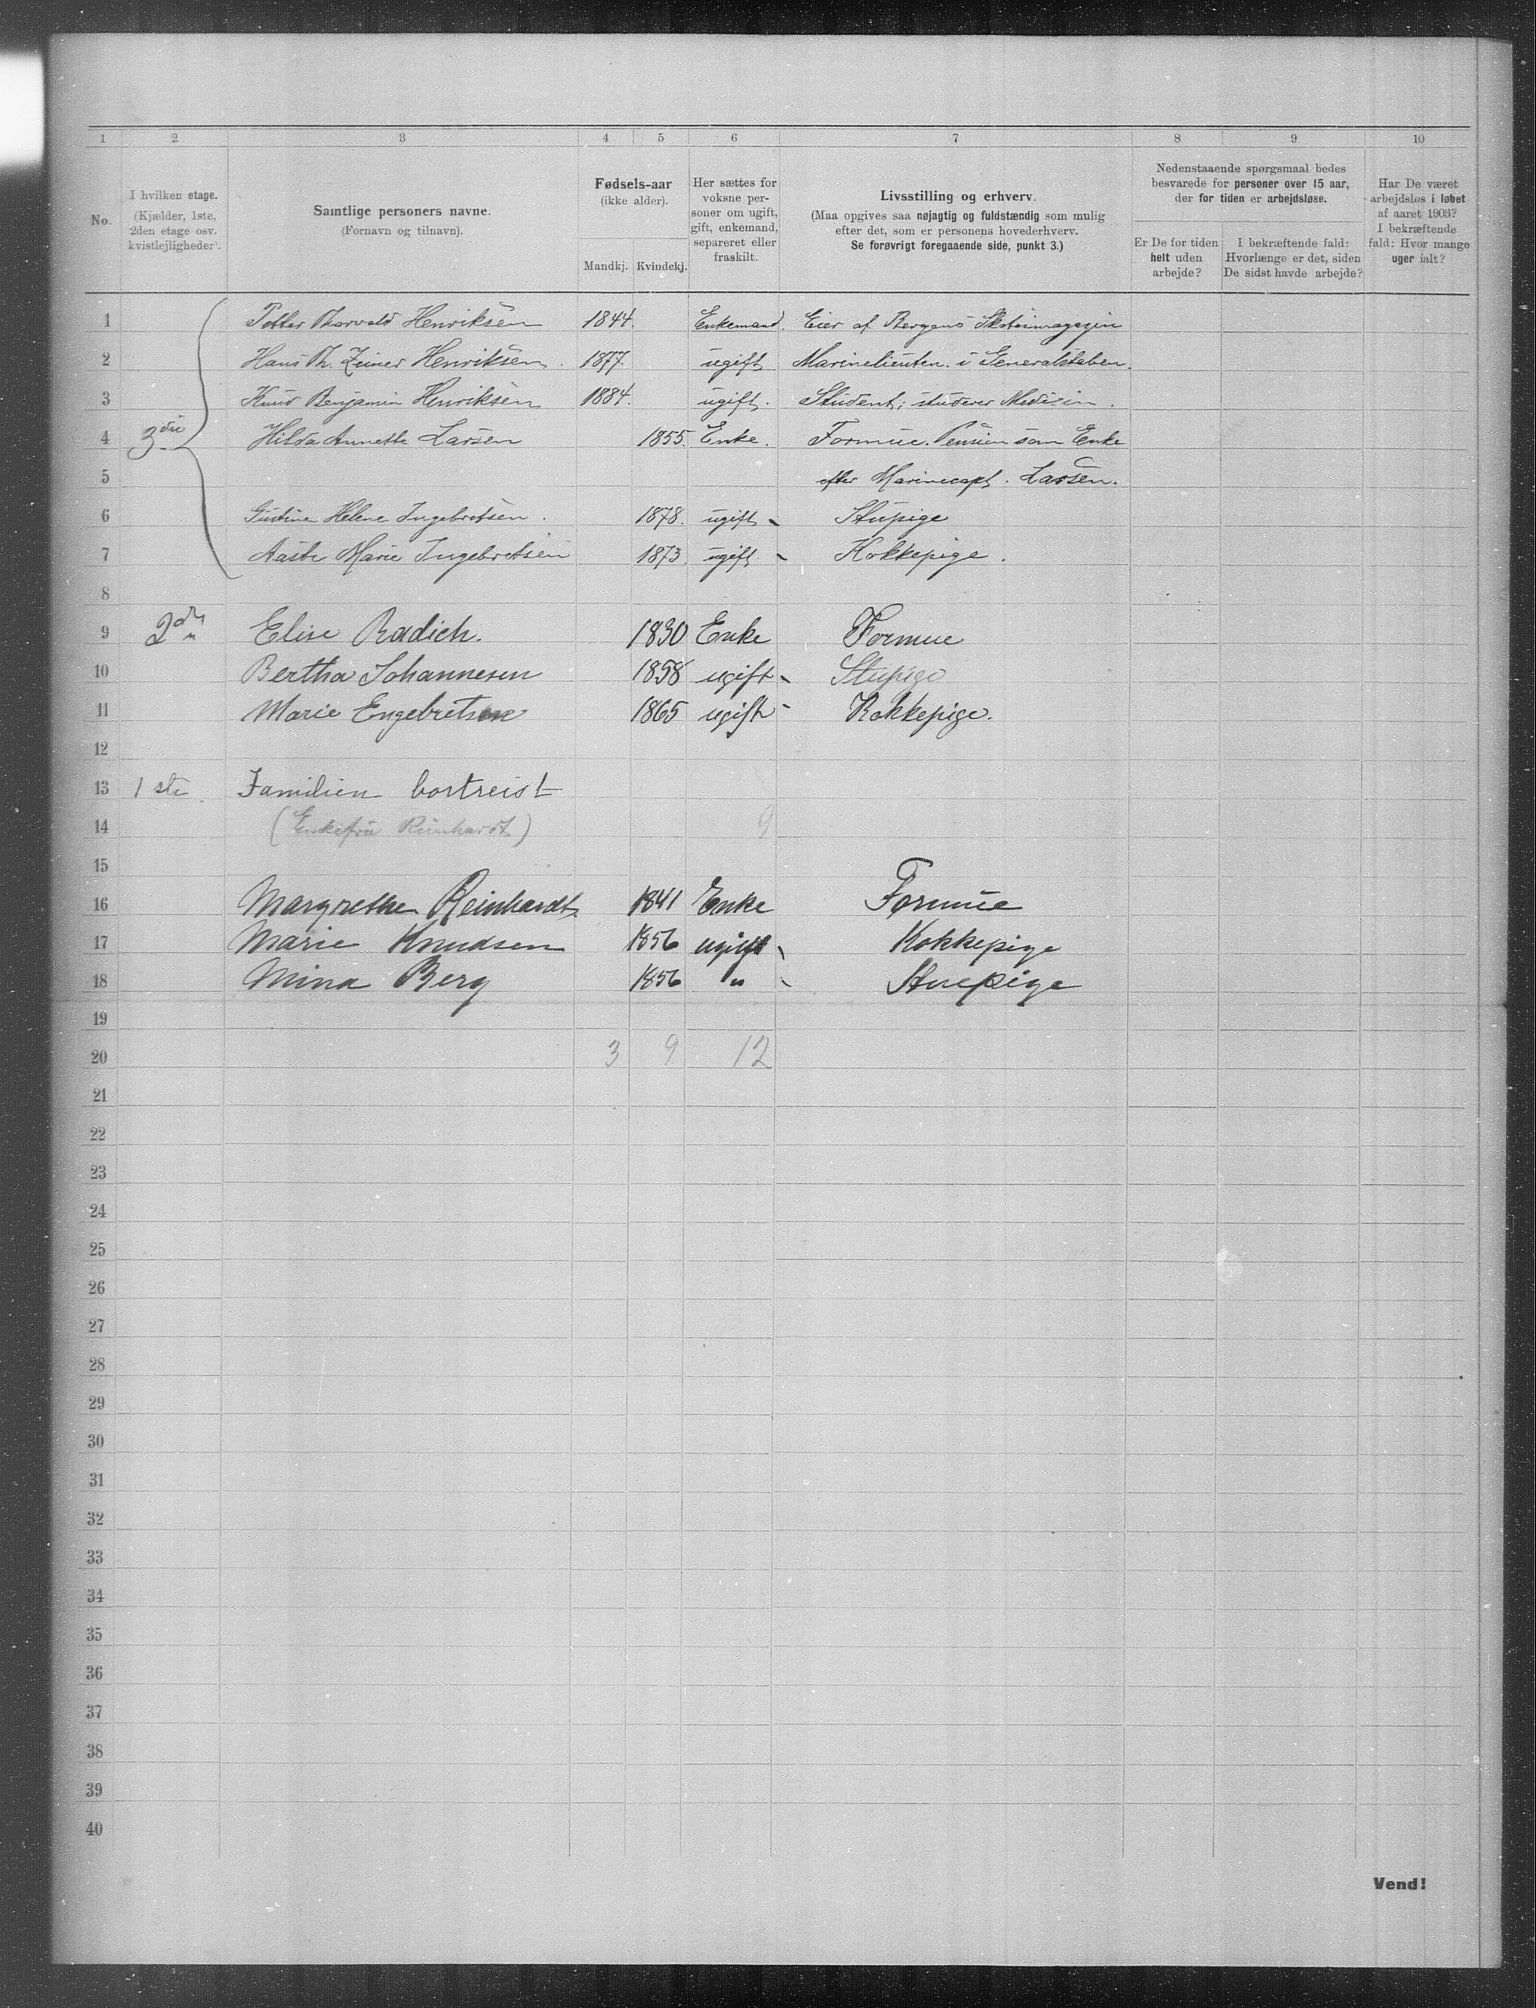 1 2 3 4 5 6 7 8 9 10
No.
I hvilken etage.
(Kjælder, 1ste,
2den etage osv.
kvistlejligheder).
Samtlige personers navne.
(Fornavn og tilnavn).
Fødsels-aar
(ikke alder).
Mandkj. Kvindekj.
Her sættes for
voksne per-
soner om ugift,
gift, enkemand,
separeret eller
fraskilt.
Livsstilling og erhverv.
(Maa opgives saa nøjagtig og fuldstændig som mulig
efter det, som er personens hovederhverv.
Se forøvrigt foregaaende side, punkt 3.)
Nedenstaaende spørgsmaal bedes
besvarede for personer over 15 aar,
der for tiden er arbejdsløse.
Er De for tiden
helt uden
arbejde?
I bekræftende fald:
Hvorlænge er det, siden
De sidst havde arbejde?
Har De været
arbejdsløs i løbet
af aaret 1903?
I bekræftende
fald: Hvor mange
uger ialt?
1 Petter Thorvald Henriksen 1844. Enkemand. Eier af Bergens Skotøimagazin
2 Hans Th. Henriksen. 1877. ugift Marinelieuten. i Generalstaben.
3 Knud Benjamin Henriksen 1884. ugift. Student; studerer Medisin.
4 3die Hilda Annette Larsen 1855. Enke. Formue. Pension som Enke
5 efter Marinecapt. Larsen.
6 Helene Ingebretsen. 1878. ugift Stuepige
7 Marie Ingebretsen 1873. ugift. Kokkepige.
8
9 2den Elise Radich. 1830 Enke Formue
10 Bertha Johannesen 1858 ugift Stuepige
11 Marie Engebretsen 1865 ugift Kokkepige.
12
13 1ste Familien bortreist
14 (Enkefru Reinhardt) 9
15
16 Margrethe Reinhardt 1841 Enke Formue
17 Marie Knudsen 1856 ugift Kokkepige
18 Mina Berg 1856 " Stuepige
19
20 3 9 12
21
22
23
24
25
26
27
28
29
30
31
32
33
34
35
36
37
38
39
40
Vend!